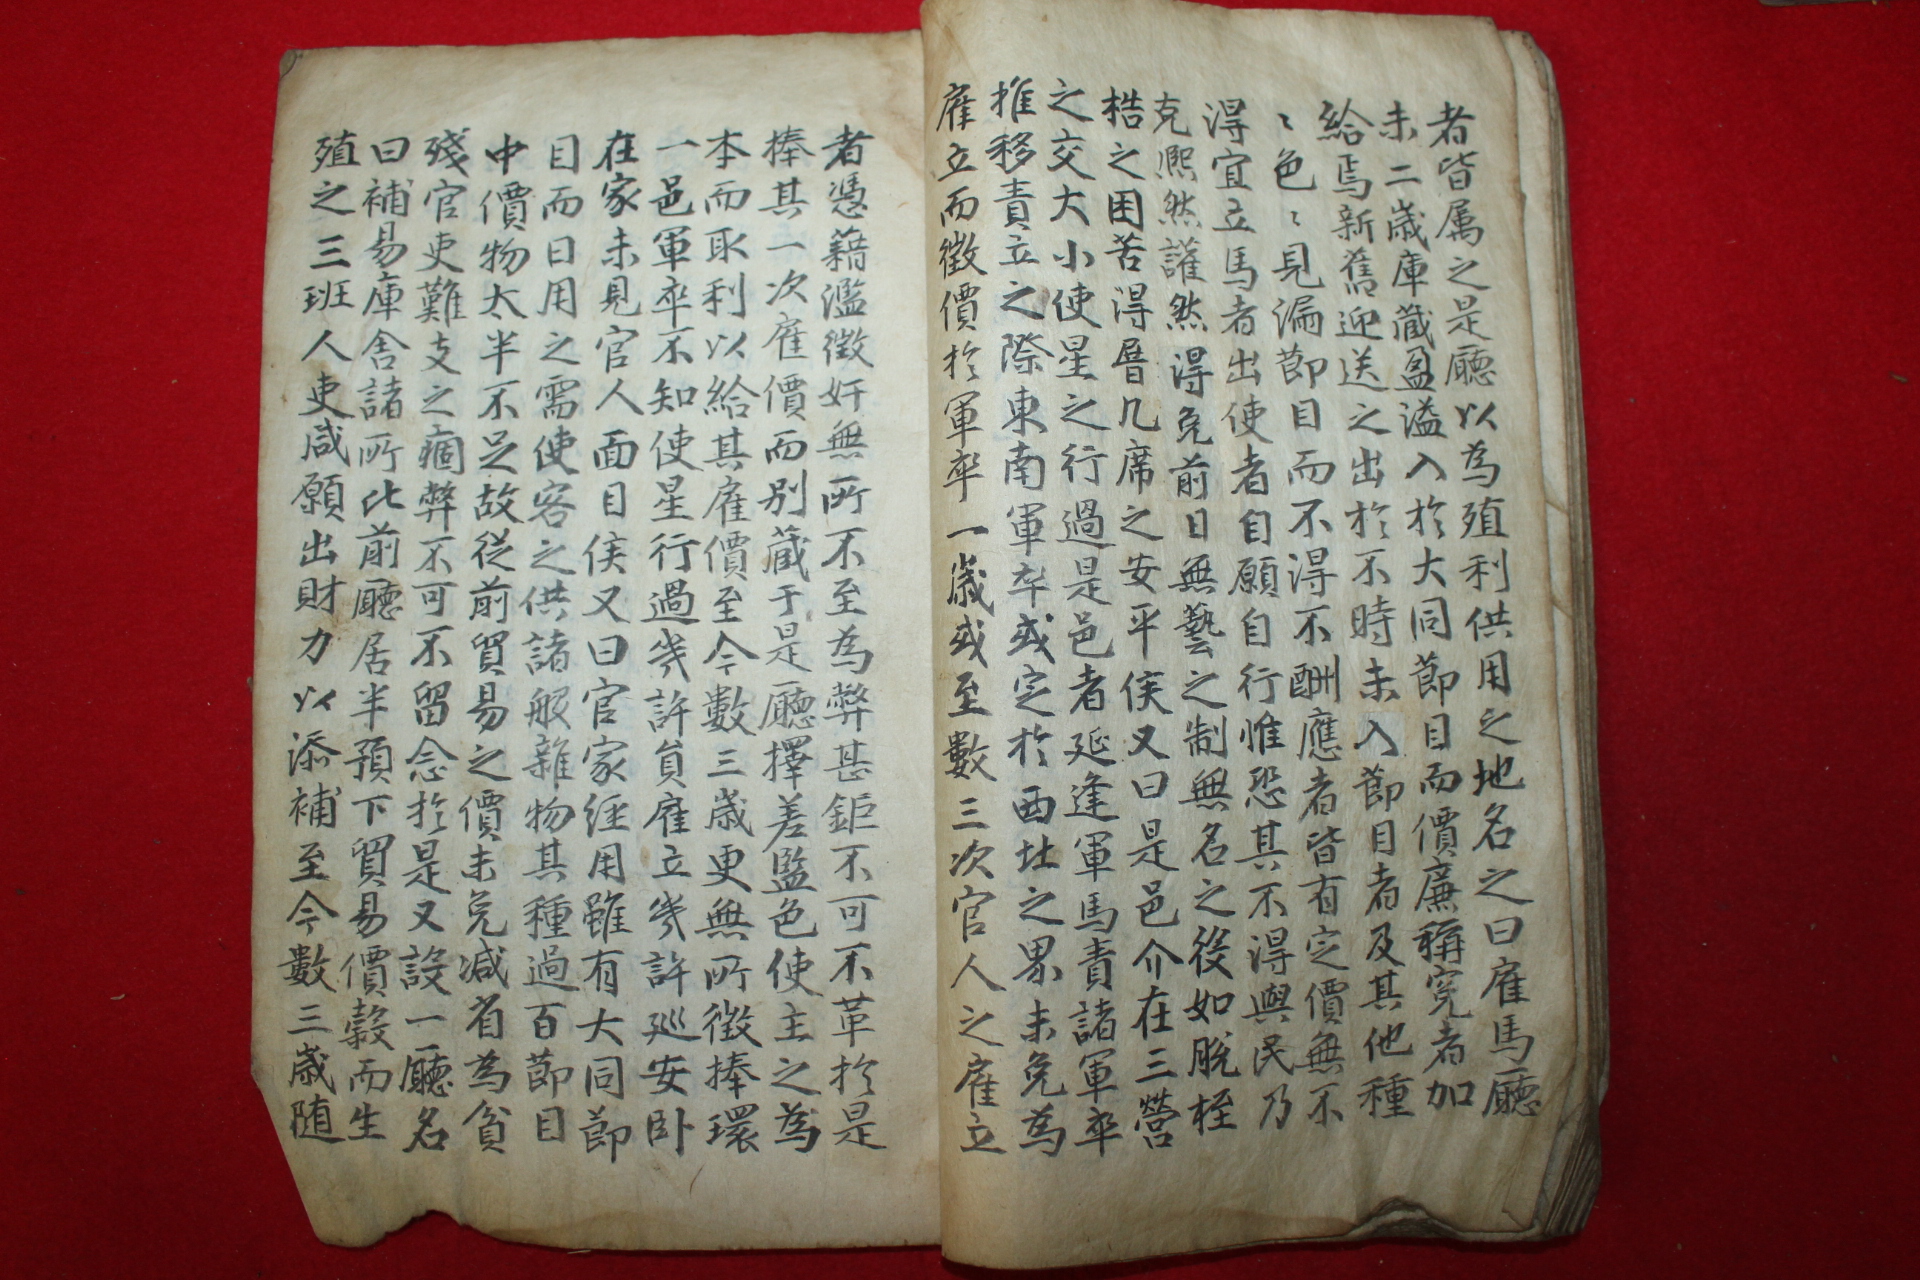 者皆属之是廳以為殖利供用之地名之曰雇馬廳
未二歲庫藏盈溢入於大同節目而價廉稱寃者加
給焉新舊迎送之出於不時未入節目者及其他種
〻色〻見漏節目而不得不酬應者皆有定價無不
得宜立馬者出使者自願自行惟恐其不得與民乃
克熈然然讙然得免前日無藝之制無名之役如脫桎
梏之困苦得厝几席之安平侯又曰是邑介在三營
之交大小使星之行過是邑者延逢軍馬責諸軍卒
推移責立之際東南軍卒或定於西北之界未免為
雇立而徵價於軍卒一歲或至數三次官人之雇立
者憑藉濫徵奸無所不至為弊甚鉅不可不革於是
捧其一次雇價而别藏于是廳擇差監色使主之為
本而取利以給其雇價至今數三歲更無所徵捧環
一邑軍卒不知使星行過幾許員雇立幾許廵安卧
在家未見官人面目侯又曰官家經用雖有大同節
目而日用之需使客之供諸般雜物其種過百節目
中價物太半不足故從前貿易之價未免減省為貧
殘官吏難支之痼弊不可不留念於是又設一廳名
曰補易庫舍諸所比前廳居半預下貿易價穀而生
殖之三班人吏咸願出財力以添補至今數三歲随